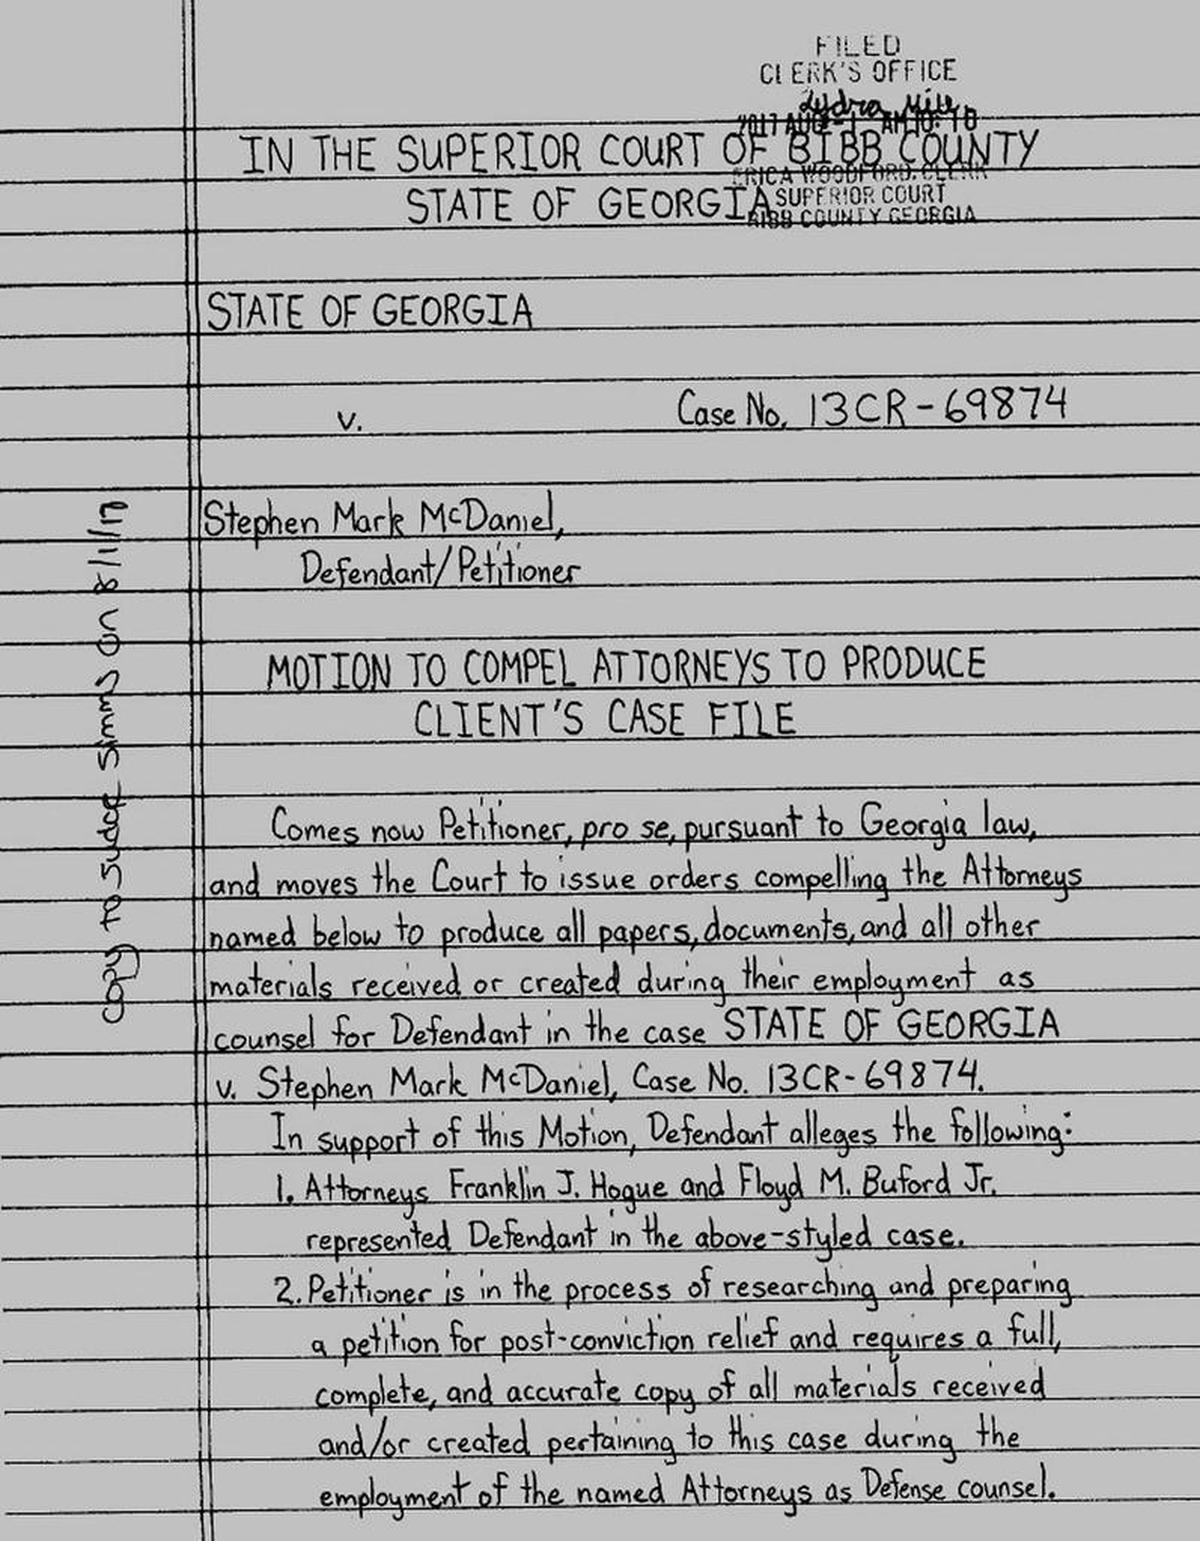 FILED
CLERK'S OFFICE
2017 AUG -1 AM 10: 10
IN THE SUPERIOR COURT OF BIBB COUNTY
ERICA WOODFORD, CLERK
STATE OF GEORGIA
SUPERIOR COURT
BIBB COUNTY GEORGIA
STATE OF GEORGIA
v.
Case No. 13CR-69874
Stephen Mark McDaniel,
Defendant/Petitioner
copy to Judge Simms on 8/1/17
MOTION TO COMPEL ATTORNEYS TO PRODUCE
CLIENT'S CASE FILE
Comes now Petitioner, pro se, pursuant to Georgia law,
and moves the Court to issue orders compelling the Attorneys
named below to produce all papers, documents, and all other
materials received or created during their employment as
counsel for Defendant in the case STATE OF GEORGIA
v. Stephen Mark McDaniel, Case No. 13CR-69874.
In support of this Motion, Defendant alleges the following:
1. Attorneys Franklin J. Hogue and Floyd M. Buford Jr.
represented Defendant in the above-styled case.
2. Petitioner is in the process of researching and preparing
a petition for post-conviction relief and requires a full,
complete, and accurate copy of all materials received
and/or created pertaining to this case during the
employment of the named Attorneys as Defense counsel.